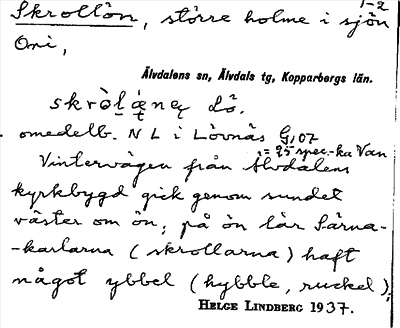 1-2
Skrollön, större holme i sjön
Orri,
Älvdalens sn, Älvdals tg, Kopparbergs län.
Lö.
omedelb. N L i Lövnäs G, 07
= 95 spec.-ka Van
Vintervägen från Älvdalens
kyrkbygd gick genom sundet
väster om ön; på ön lär Särna-
-karlarna (skrollarna) haft
något ybbel (hybble, ruckel);
HELGE LINDBERG 1937.